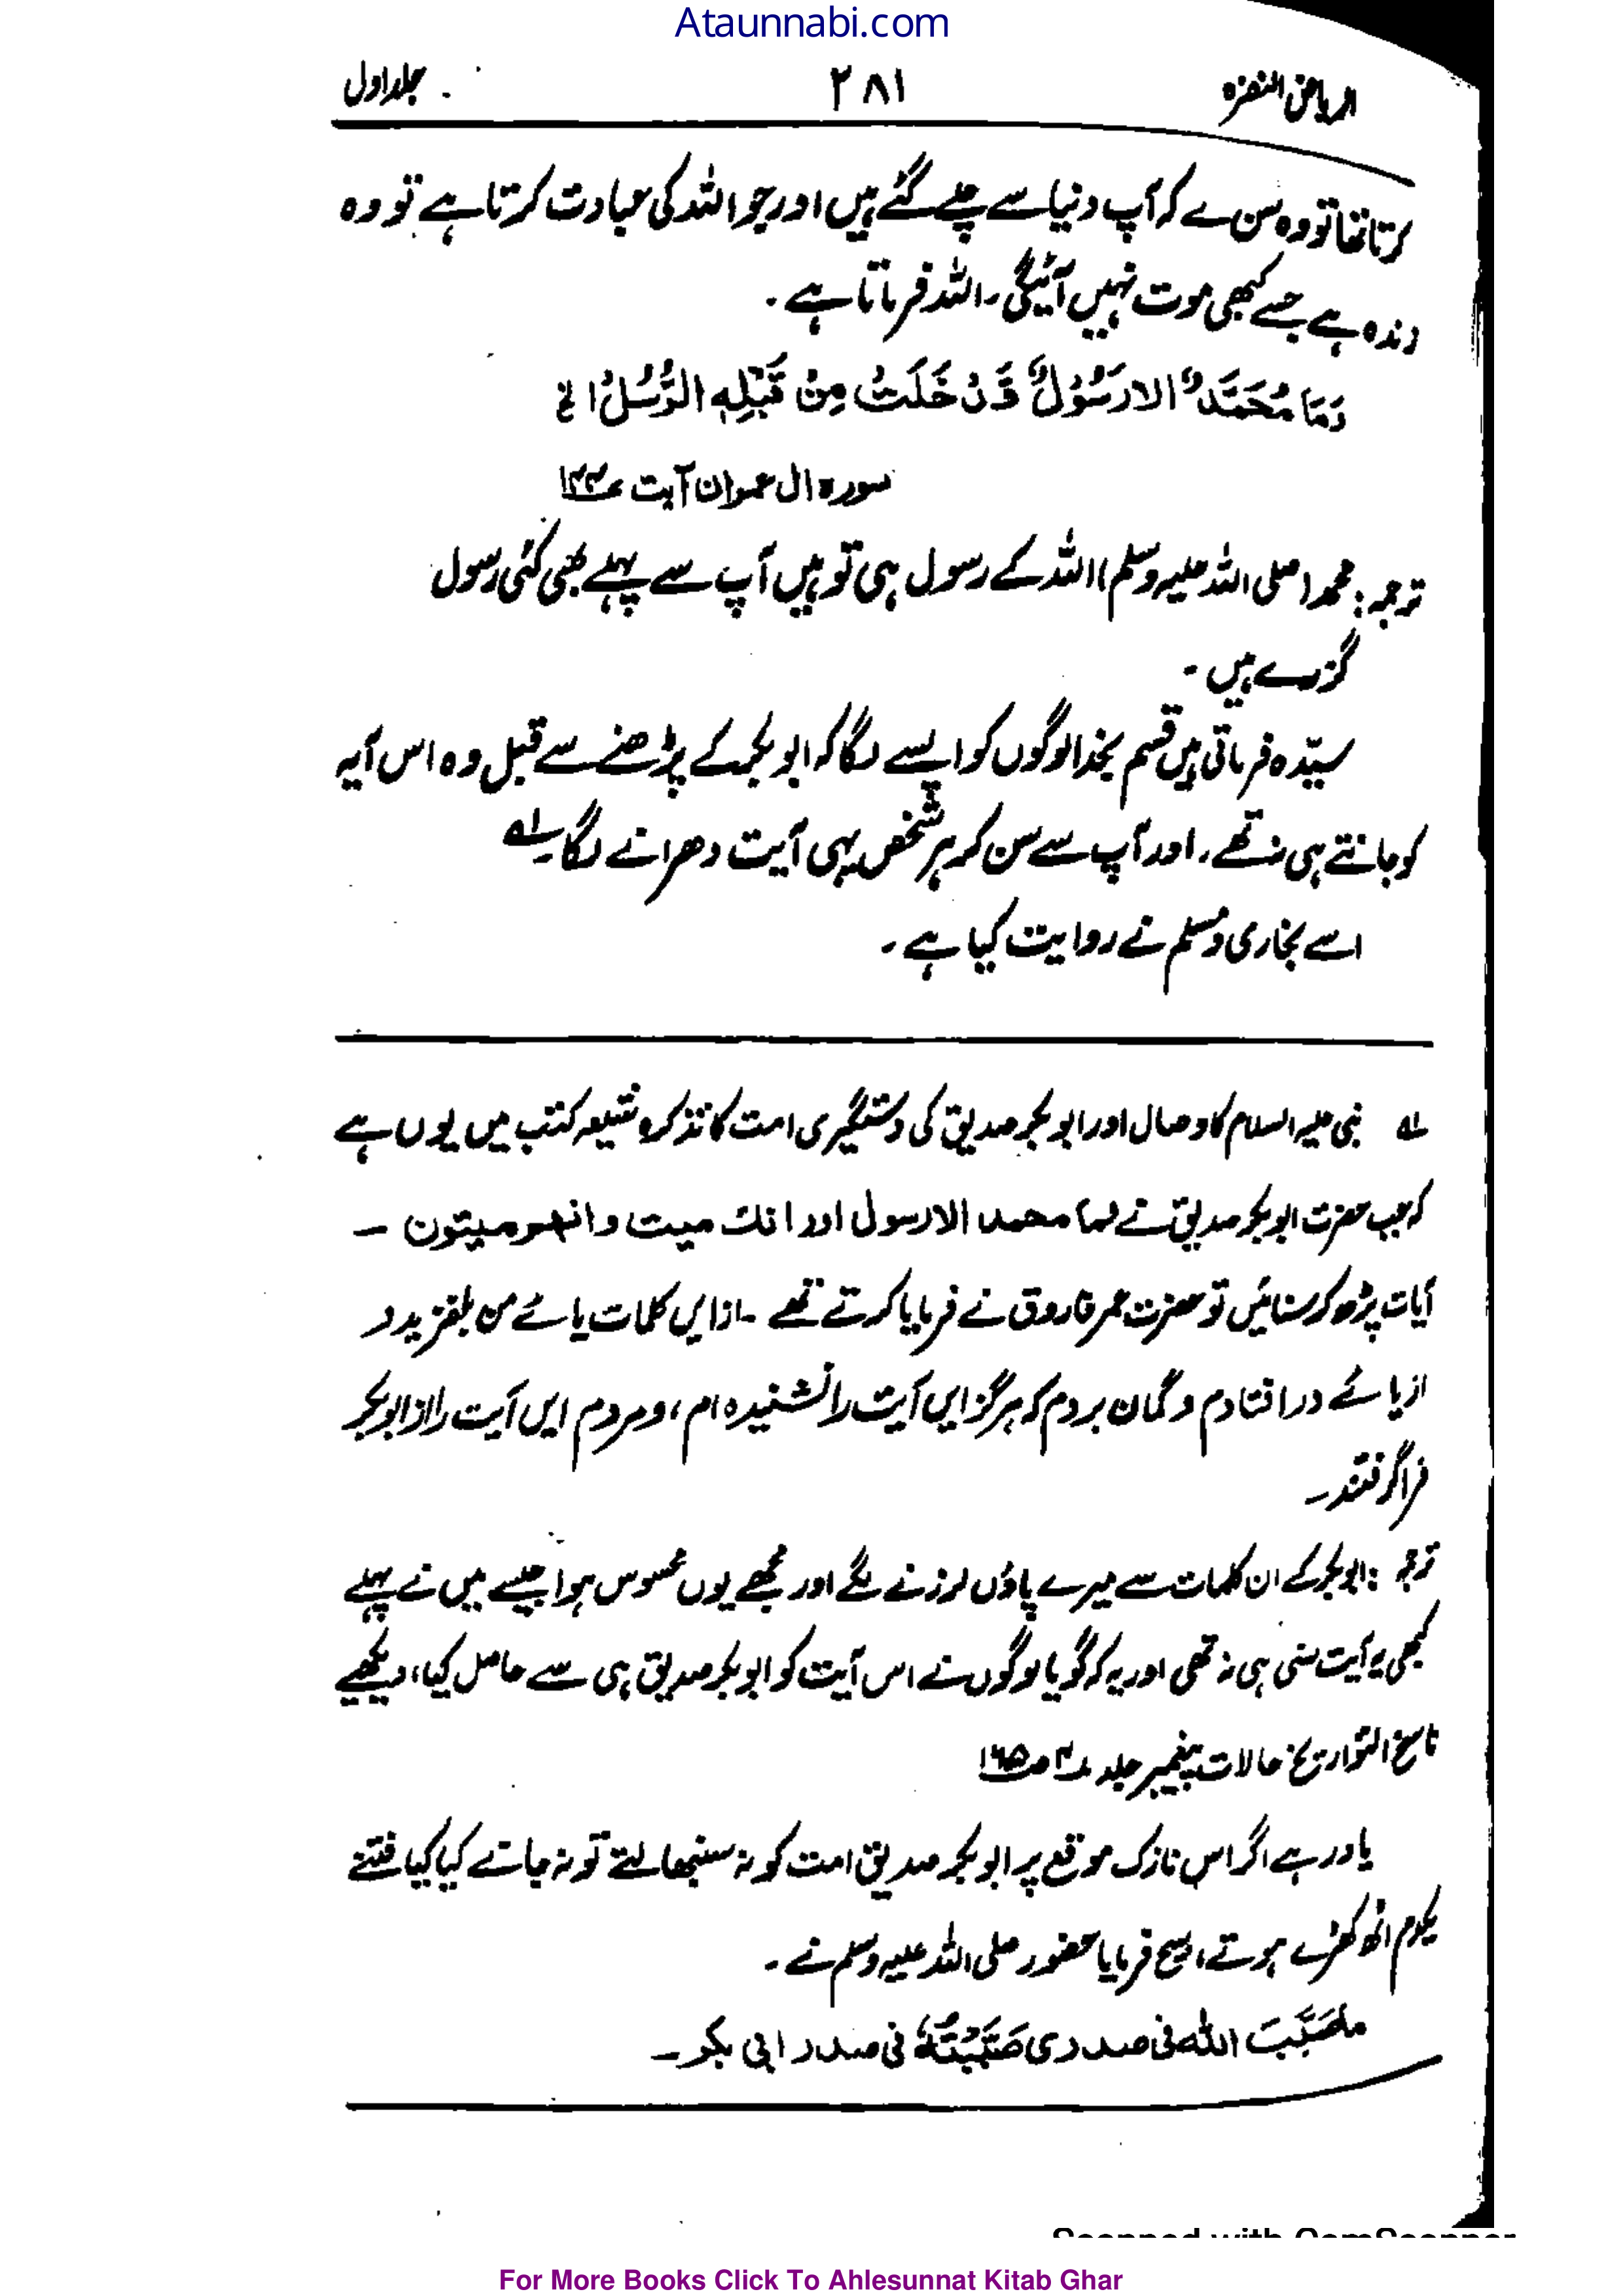 Ataunnabi.com
الریاض النضرہ ۲۸۱ جلد اول
کرتا تھا تو وہ سن لے کہ آپ دنیا سے چلے گئے ہیں اور جو اللہ کی عبادت کرتا ہے تو وہ
زندہ ہے جسے کبھی موت نہیں آئیگی۔ اللہ فرماتا ہے۔
وَمَا مُحَمَّدٌ الا رَسُوْلٌ قَدْ خَلَتْ مِنْ قَبْلِہِ الرُّسُلُ الخ
سورہ ال عمران آیت ۱۴۴
ترجمہ: محمد (صلی اللہ علیہ وسلم) اللہ کے رسول ہی تو ہیں آپ سے پہلے بھی کئی رسول
گزرے ہیں۔
سیّدہ فرماتی ہیں قسم بخدا لوگوں کو ایسے لگا کہ ابوبکر کے پڑھنے سے قبل وہ اس آیہ
کو جانتے ہی نہ تھے۔ اور آپ سے سن کر ہر شخص یہی آیت دھرانے لگا۔ لہ
اسے بخاری و مسلم نے روایت کیا ہے۔
لہ نبی علیہ السلام کا وصال اور ابوبکر صدیق کی دستگیری امت کا تذکرہ شیعہ کتب میں یوں ہے
کہ جب حضرت ابوبکر صدیق نے لہا محمد الا رسول اور انک میت وانہم میتون ۔
آیات پڑھ کر سنائیں تو حضرت عمر فاروق نے فرمایا کرتے تھے ۔ ازایں کلمات پائے من بلغزید و
از پائے در افتادم و گمان بردم کہ ہرگز ایں آیت را نشنیدہ ام، ومردم ایں آیت را از ابوبکر
فراگرفتند۔
ترجمہ: ابوبکر کے ان کلمات سے میرے پاؤں لرزنے لگے اور مجھے یوں محسوس ہوا جیسے میں نے پہلے
کبھی یہ آیت سنی ہی نہ تھی اور یہ کہ گویا لوگوں نے اس آیت کو ابوبکر صدیق ہی سے حاصل کیا، دیکھیے
ناسخ التواریخ حالات پیغمبر جلد ۴ ص ۱۶۵
یاد رہے اگر اس نازک موقع پر ابوبکر صدیق امت کو نہ سنبھالتے تو نہ جانے کیا کیا فتنے
یکدم اٹھ کھڑے ہوتے، سچ فرمایا حضور صلی اللہ علیہ وسلم نے۔
ما صَبَّبَ اللہ فی صدری صَبَّبْتُہٗ فی صدر ابی بکر۔
Scanned with CamScanner
For More Books Click To Ahlesunnat Kitab Ghar